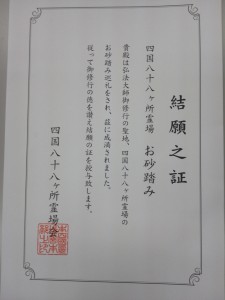 結願之証
四国八十八ヶ所霊場 お砂踏み
貴殿は弘法大師御修行の聖地、四国八十八ヶ所霊場の
お砂踏み巡礼をされ、茲に成満されました。
従って御修行の徳を讃え結願の証を授与致します。
四国八十八ヶ所霊場会